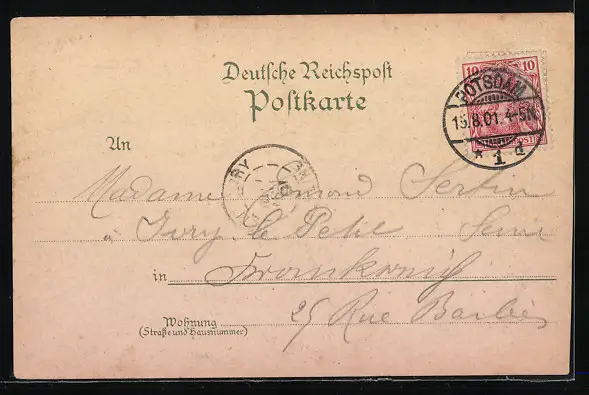 Deutsche Reichspost
Postkarte
10 10
POTSDAM
15.8.01. 4-5N.
* 1 d
An
IVRY
Madame Sertin
à Ivry le Petit Seine
in Frankreich
25 Rue Barbès
Wohnung
(Straße und Hausnummer)